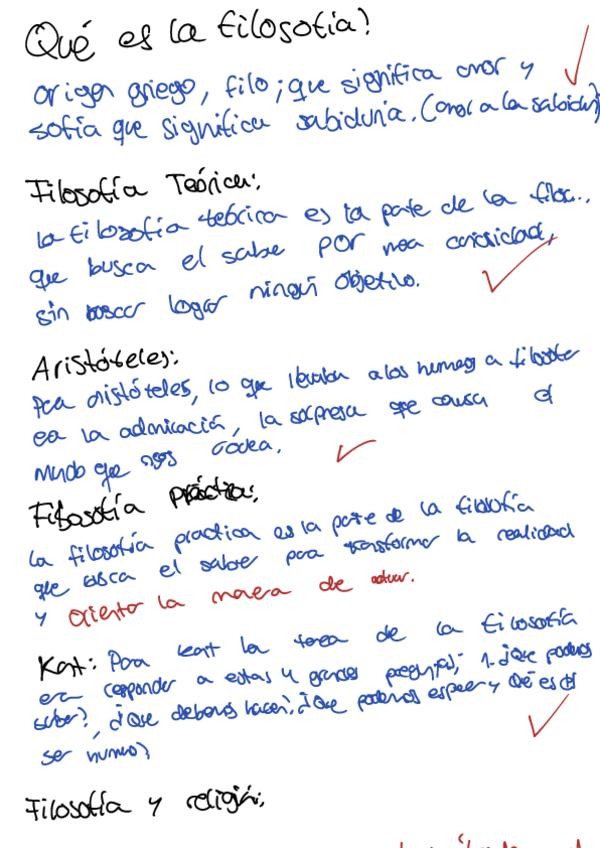 Qué es la filosofía?
origen griego, filo; que significa amor y
sofía que significa sabiduría. (amor a la sabiduría)
Filosofía Teórica:
la filosofía teórica es la parte de la filo...
que busca el saber por mea curiosidad,
sin buscar lograr ningún objetivo.
Aristóteles:
Para aristóteles, lo que llevaba a los humanos a filosofar
era la admiración, la sorpresa que causa el
mundo que nos rodea.
Filosofía práctica:
la filosofía practica es la parte de la filosofía
que busca el saber para transformar la realidad
y orientar la manera de actuar.
Kant: Para kant la tarea de la filosofía
era responder a estas 4 grandes preguntas; 1. ¿Que podemos
saber?, ¿Que debemos hacer?, ¿Que podemos esperar y Qué es el
ser humano?
Filosofía y religión: